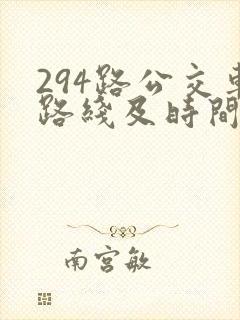 294路公交車
路綫及時間
南宫敏